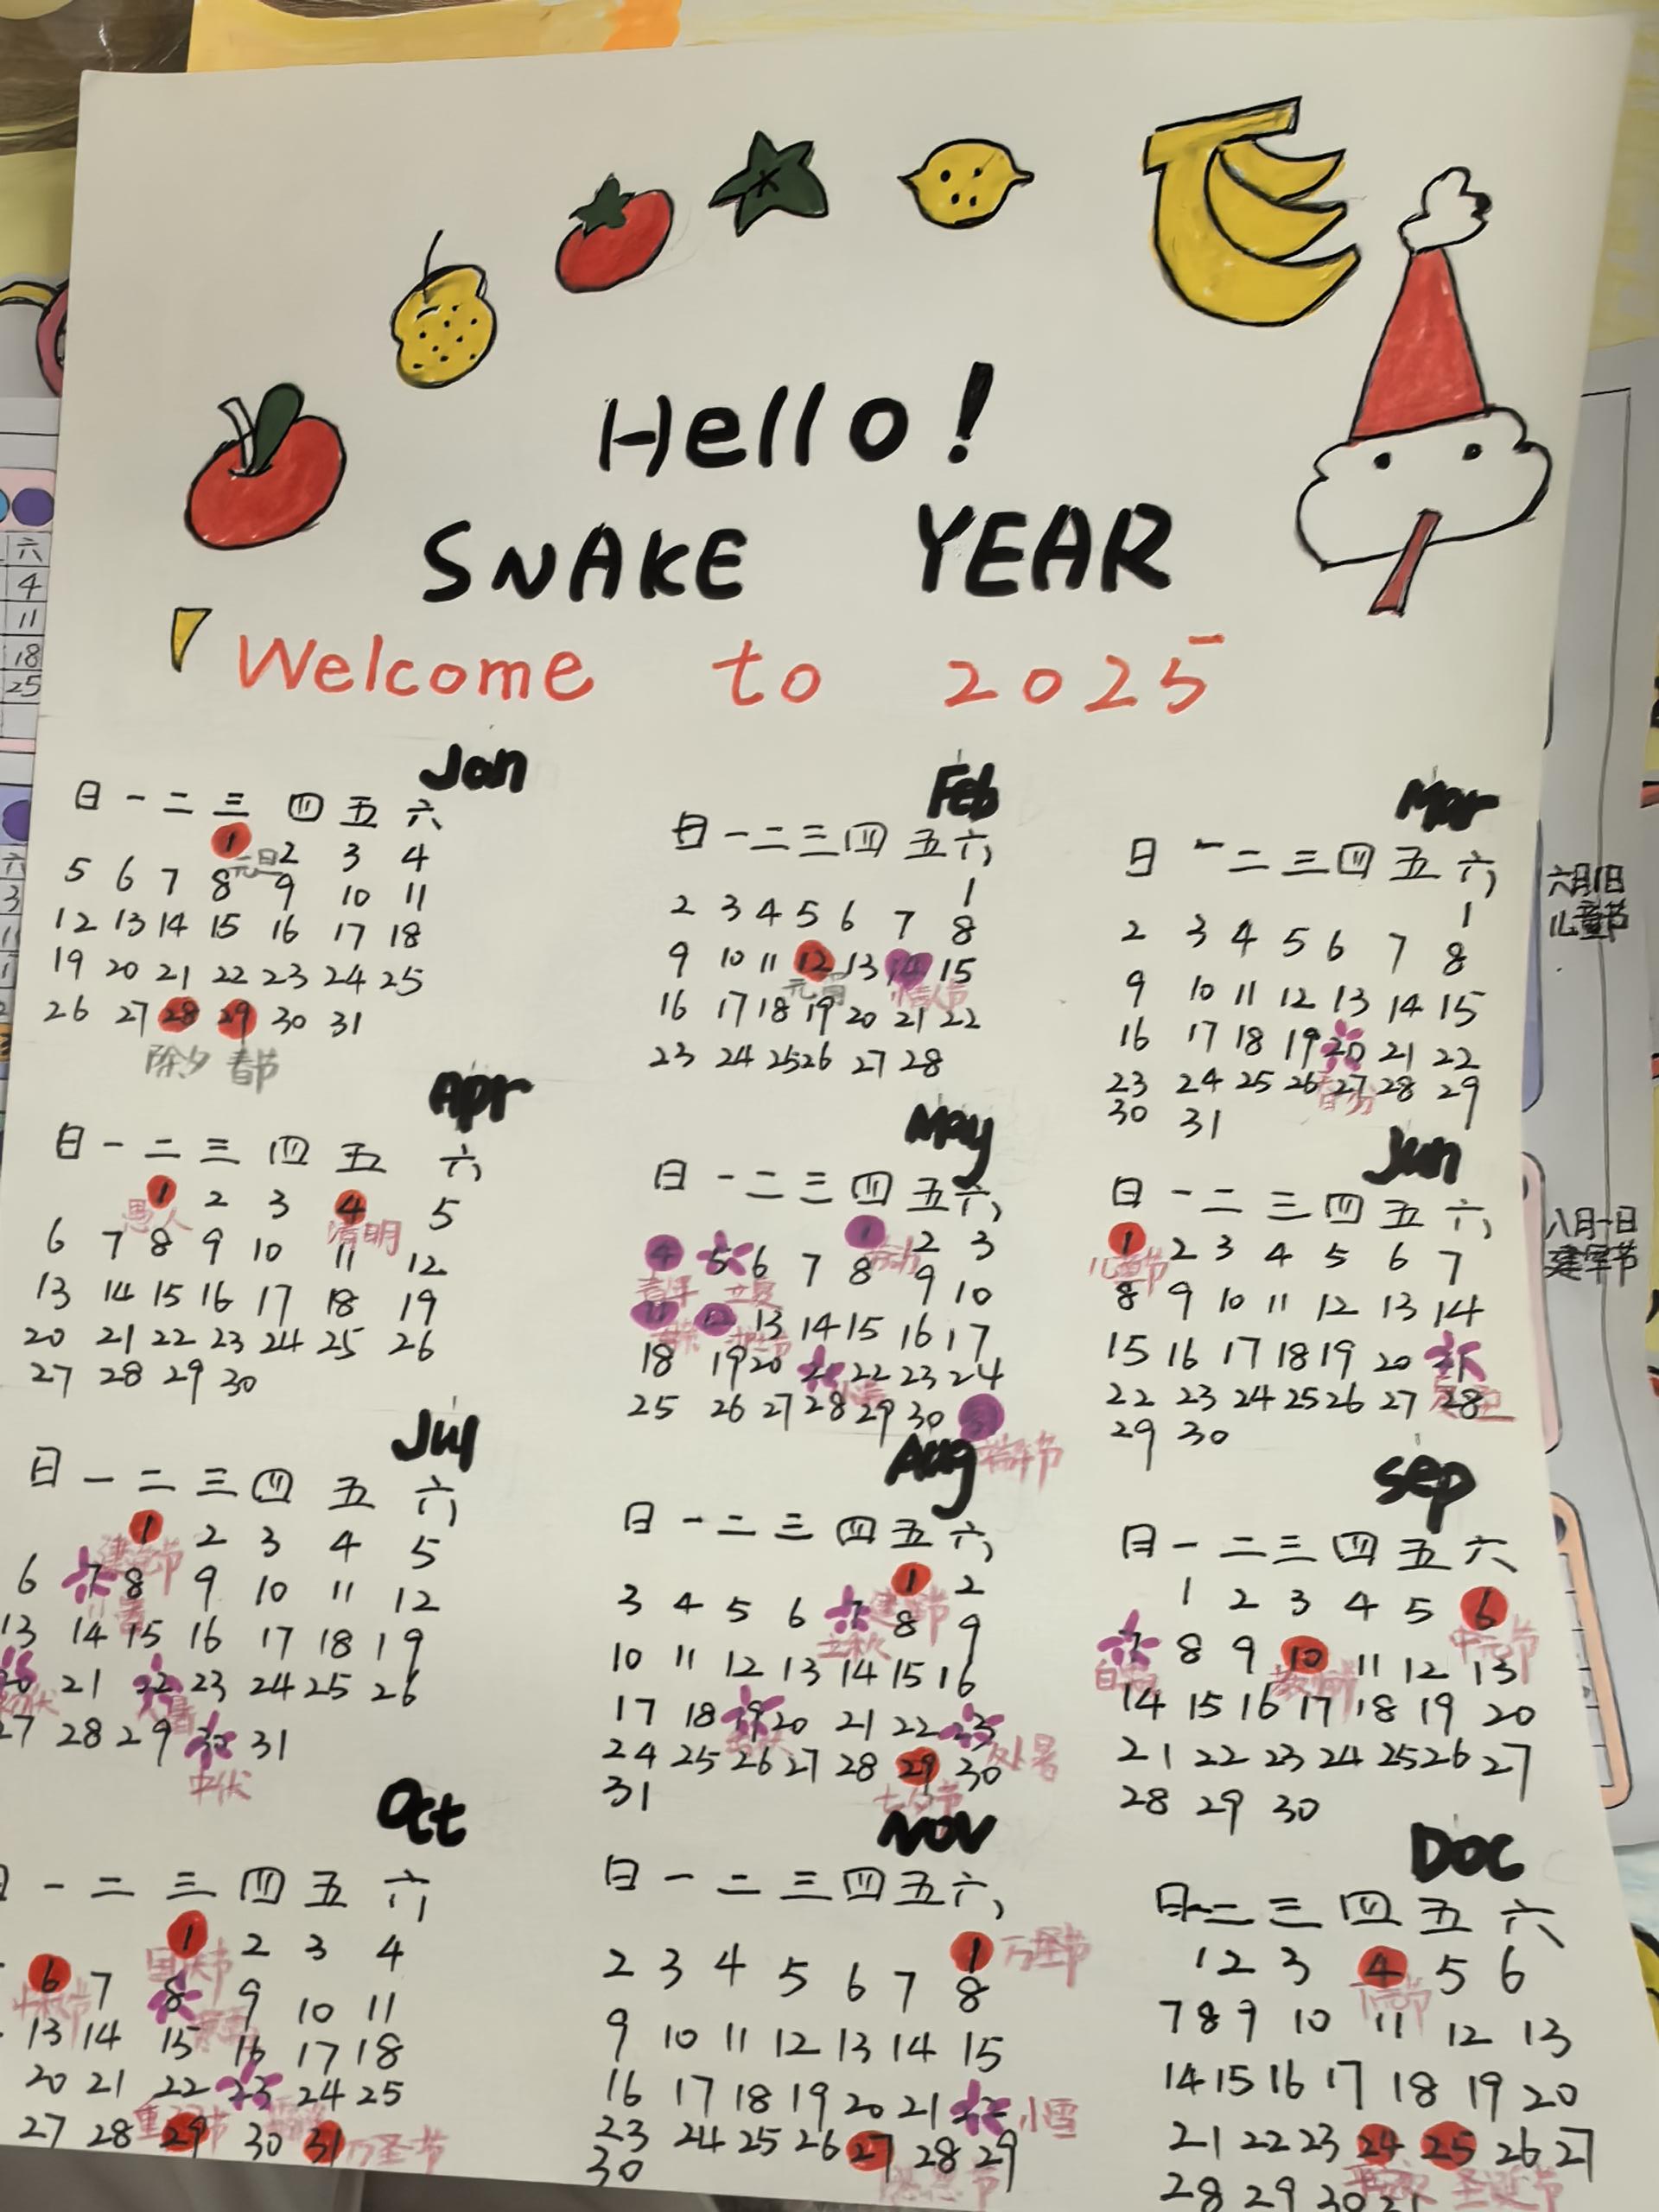 Hello!
SNAKE YEAR
Welcome to 2025
Jan
日 一 二 三 四 五 六
1 2 3 4
元旦
5 6 7 8 9 10 11
12 13 14 15 16 17 18
19 20 21 22 23 24 25
26 27 28 29 30 31
除夕 春节
Feb
日 一 二 三 四 五 六
1
2 3 4 5 6 7 8
9 10 11 12 13 14 15
元宵 情人节
16 17 18 19 20 21 22
23 24 25 26 27 28
Mar
日 一 二 三 四 五 六
1
2 3 4 5 6 7 8
9 10 11 12 13 14 15
16 17 18 19 20 21 22
23 24 25 26 27 28 29
春分
30 31
Apr
日 一 二 三 四 五 六
1 2 3 4 5
愚人 清明
6 7 8 9 10 11 12
13 14 15 16 17 18 19
20 21 22 23 24 25 26
27 28 29 30
May
日 一 二 三 四 五 六
1 2 3
劳动
4 5 6 7 8 9 10
青年 立夏
11 12 13 14 15 16 17
18 19 20 21 22 23 24
25 26 27 28 29 30 31
端午节
Jun
日 一 二 三 四 五 六
1 2 3 4 5 6 7
儿童节
8 9 10 11 12 13 14
15 16 17 18 19 20 21
22 23 24 25 26 27 28
夏至
29 30
Jul
日 一 二 三 四 五 六
1 2 3 4 5
建党节
6 7 8 9 10 11 12
小暑
13 14 15 16 17 18 19
20 21 22 23 24 25 26
大暑
27 28 29 30 31
中伏
Aug
日 一 二 三 四 五 六
1 2
建军节
3 4 5 6 7 8 9
立秋
10 11 12 13 14 15 16
17 18 19 20 21 22 23
处暑
24 25 26 27 28 29 30
七夕节
31
Sep
日 一 二 三 四 五 六
1 2 3 4 5 6
7 8 9 10 11 12 13
白露 教师
14 15 16 17 18 19 20
21 22 23 24 25 26 27
28 29 30
Oct
一 二 三 四 五 六
1 2 3 4
国庆节
6 7 8 9 10 11
中秋节 寒露
13 14 15 16 17 18
20 21 22 23 24 25
27 28 29 30 31
重阳节 霜降 万圣节
Nov
日 一 二 三 四 五 六
1 万圣节
2 3 4 5 6 7 8
9 10 11 12 13 14 15
16 17 18 19 20 21 22
小雪
23 24 25 26 27 28 29
30
Doc
日 一 二 三 四 五 六
1 2 3 4 5 6
7 8 9 10 11 12 13
14 15 16 17 18 19 20
21 22 23 24 25 26 27
圣诞节
28 29 30 31
六月1日
儿童节
八月一日
建军节
六
4
11
18
25